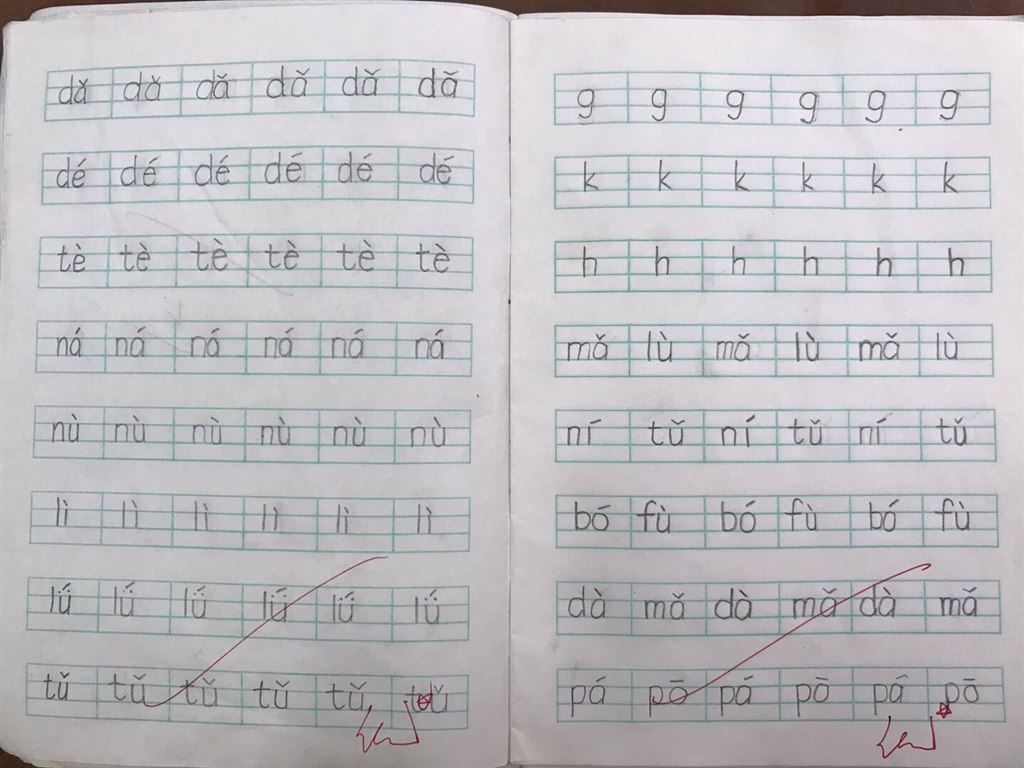 dǎ dǎ dǎ dǎ dǎ dǎ
dé dé dé dé dé dé
tè tè tè tè tè tè
ná ná ná ná ná ná
nù nù nù nù nù nù
lì lì lì lì lì lì
lǘ lǘ lǘ lǘ lǘ lǘ
tǔ tǔ tǔ tǔ tǔ tǔ
g g g g g g
k k k k k k
h h h h h h
mǎ lù mǎ lù mǎ lù
ní tǔ ní tǔ ní tǔ
bó fù bó fù bó fù
dà mǎ dà mǎ dà mǎ
pá pō pá pō pá pō